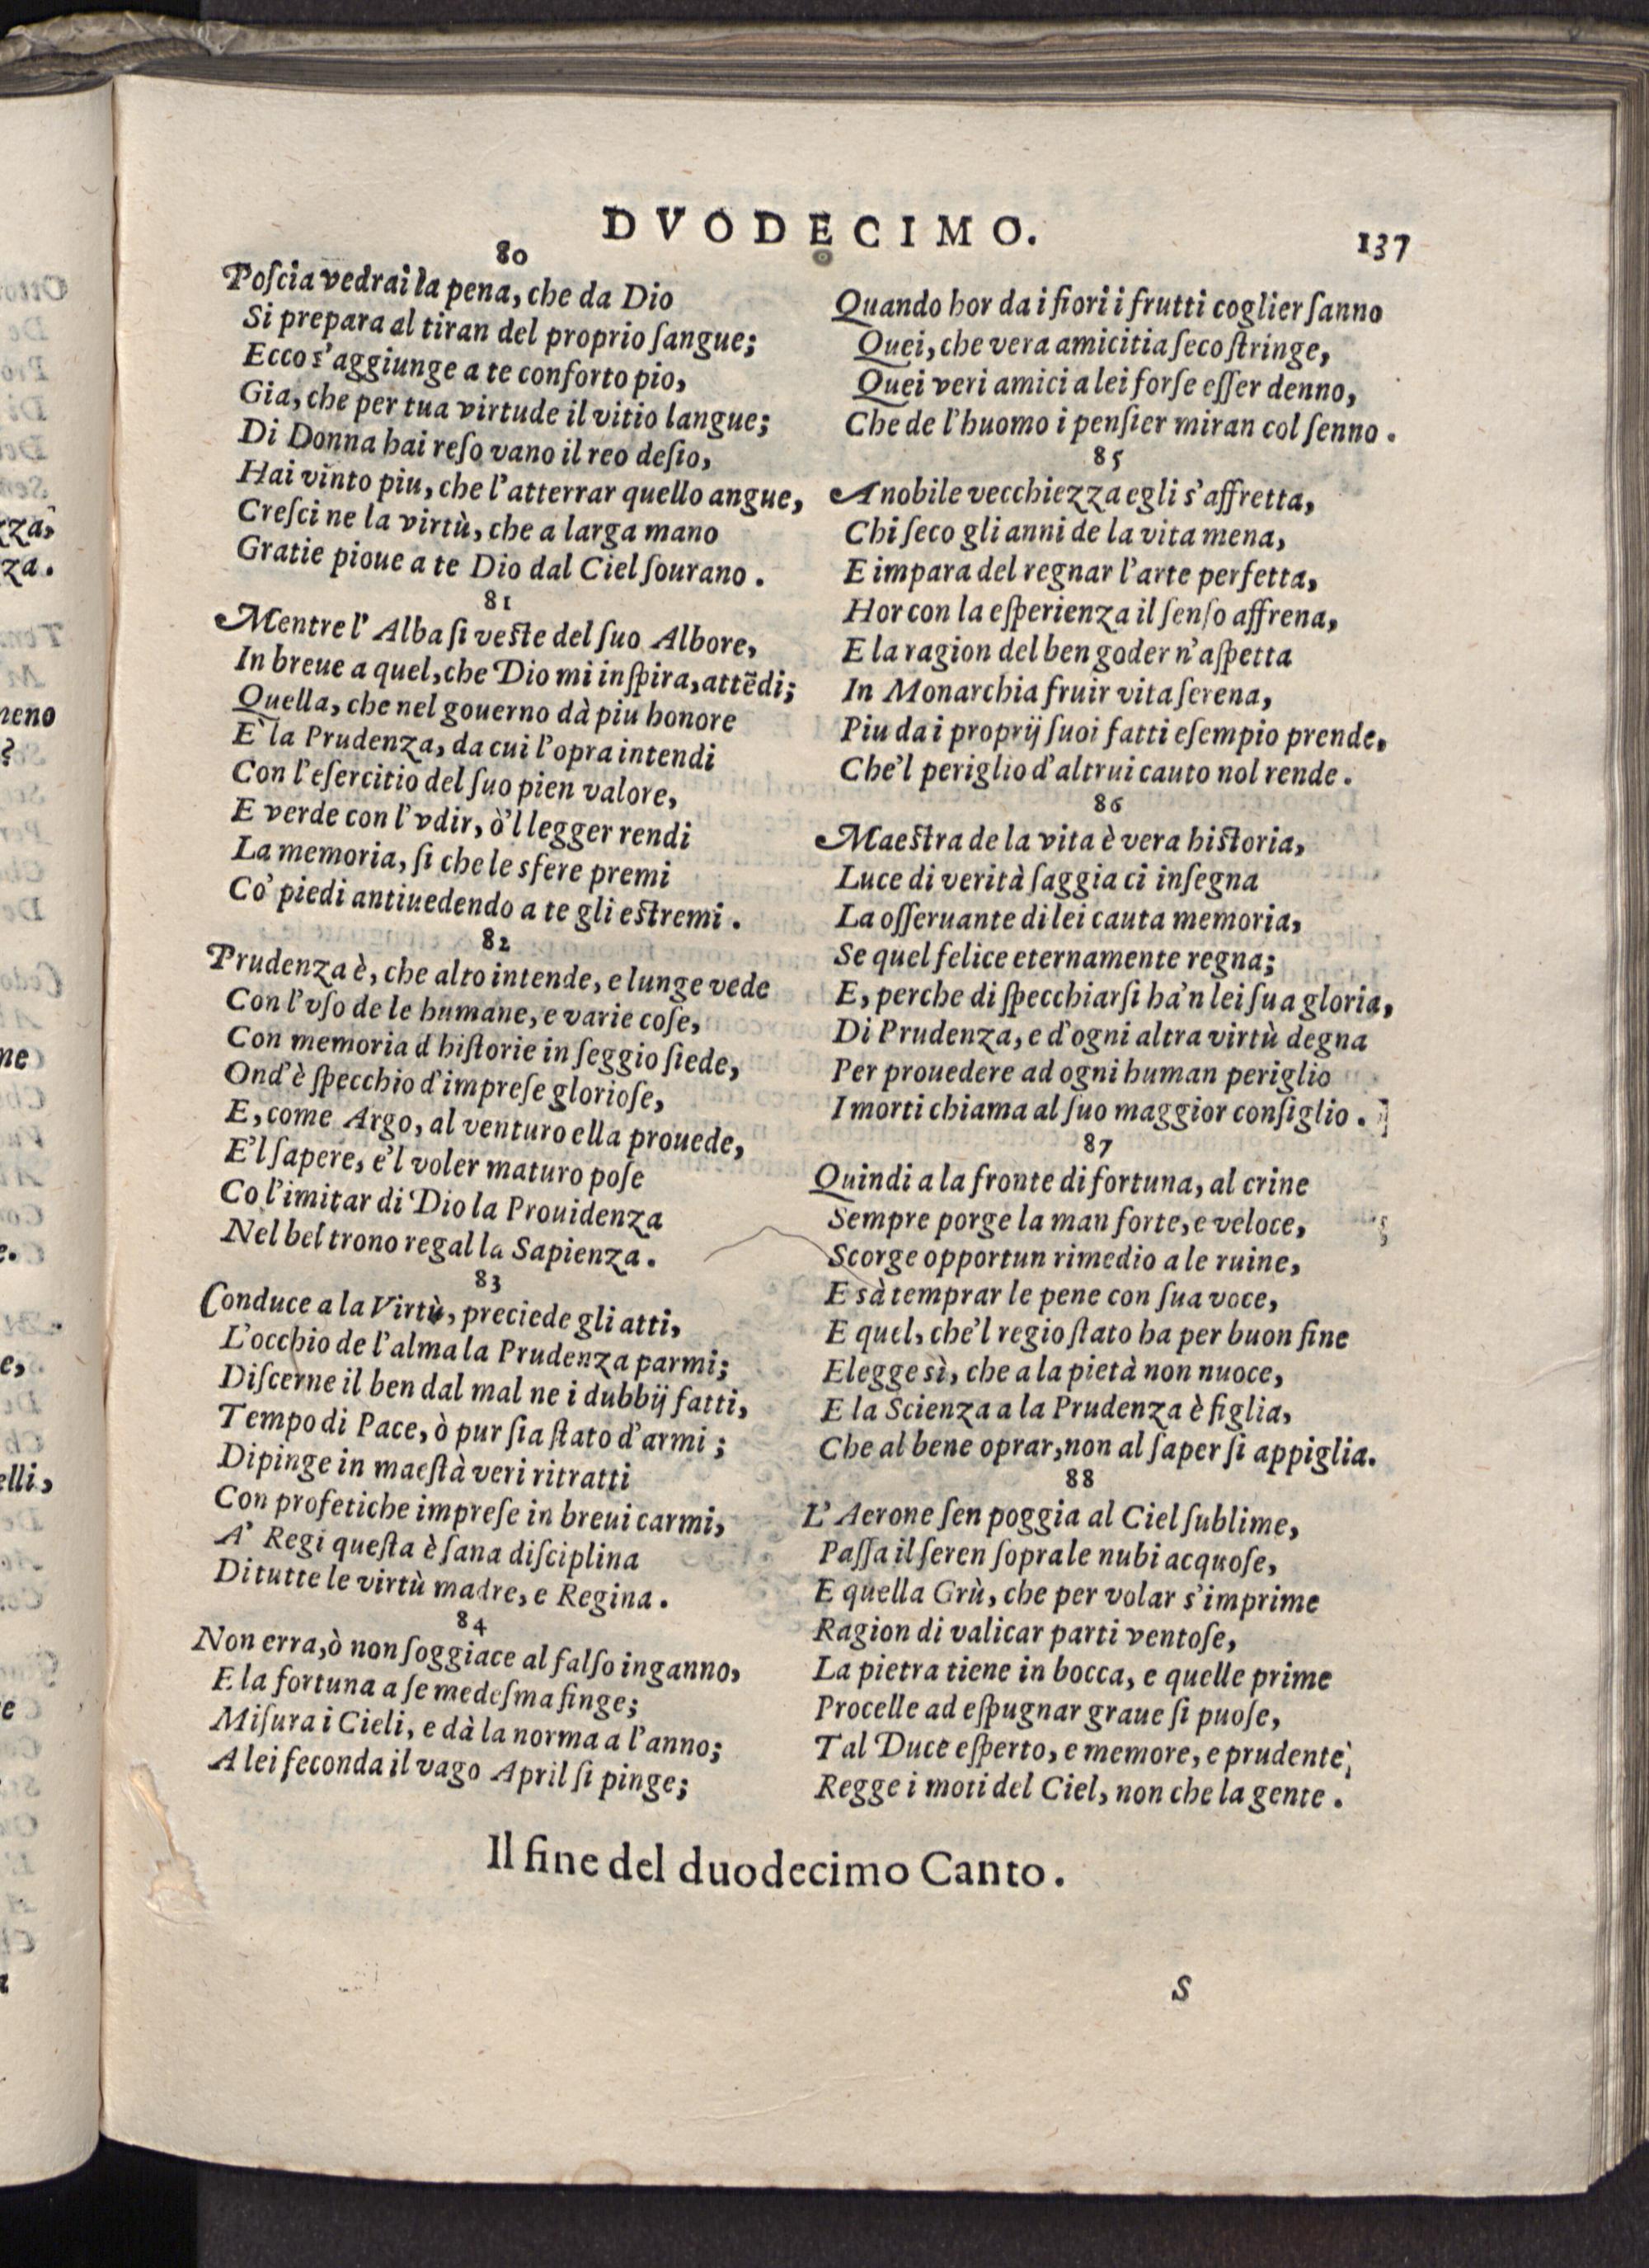 DVODECIMO.
137
80
Poſcia vedrai la pena, che da Dio
Si prepara al tiran del proprio ſangue;
Ecco s'aggiunge a te conforto pio,
Gia, che per tua virtude il vitio langue;
Di Donna hai reſo vano il reo deſio,
Hai vinto piu, che l'atterrar quello angue,
Creſci ne la virtù, che a larga mano
Gratie pioue a te Dio dal Ciel ſourano.
81
Mentre l'Alba ſi veſte del ſuo Albore,
In breue a quel, che Dio mi inſpira, attẽdi;
Quella, che nel gouerno dà piu honore
E' la Prudenza, da cui l'opra intendi
Con l'eſercitio del ſuo pien valore,
E verde con l'vdir, ò'l legger rendi
La memoria, ſi che le sfere premi
Co' piedi antiuedendo a te gli eſtremi.
82
Prudenza è, che alto intende, e lunge vede
Con l'vſo de le humane, e varie coſe,
Con memoria d hiſtorie in ſeggio ſiede,
Ond'è ſpecchio d'impreſe glorioſe,
E, come Argo, al venturo ella prouede,
E'l ſapere, e'l voler maturo poſe
Co l'imitar di Dio la Prouidenza
Nel bel trono regal la Sapienza.
83
Conduce a la Virtù, preciede gli atti,
L'occhio de l'alma la Prudenza parmi;
Diſcerne il ben dal mal ne i dubbij fatti,
Tempo di Pace, ò pur ſia ſtato d'armi;
Dipinge in maeſtà veri ritratti
Con profetiche impreſe in breui carmi,
A' Regi queſta è ſana diſciplina
Di tutte le virtù madre, e Regina.
84
Non erra, ò non ſoggiace al falſo inganno,
E la fortuna a ſe medeſma finge;
Miſura i Cieli, e dà la norma a l'anno;
A lei feconda il vago April ſi pinge;
Quando hor da i fiori i frutti coglier ſanno
Quei, che vera amicitia ſeco ſtringe,
Quei veri amici a lei forſe eſſer denno,
Che de l'huomo i penſier miran col ſenno.
85
A nobile vecchiezza egli s'affretta,
Chi ſeco gli anni de la vita mena,
E impara del regnar l'arte perfetta,
Hor con la eſperienza il ſenſo affrena,
E la ragion del ben goder n'aſpetta
In Monarchia fruir vita ſerena,
Piu da i proprij ſuoi fatti eſempio prende,
Che'l periglio d'altrui cauto nol rende.
86
Maeſtra de la vita è vera hiſtoria,
Luce di verità ſaggia ci inſegna
La oſſeruante di lei cauta memoria,
Se quel felice eternamente regna;
E, perche di ſpecchiarſi ha'n lei ſua gloria,
Di Prudenza, e d'ogni altra virtù degna
Per prouedere ad ogni human periglio
I morti chiama al ſuo maggior conſiglio.
87
Quindi a la fronte di fortuna, al crine
Sempre porge la man forte, e veloce,
Scorge opportun rimedio a le ruine,
E sà temprar le pene con ſua voce,
E quel, che'l regio ſtato ha per buon fine
Elegge sì, che a la pietà non nuoce,
E la Scienza a la Prudenza è figlia,
Che al bene oprar, non al ſaper ſi appiglia.
88
L'Aerone ſen poggia al Ciel ſublime,
Paſſa il ſeren ſopra le nubi acquoſe,
E quella Grù, che per volar s'imprime
Ragion di valicar parti ventoſe,
La pietra tiene in bocca, e quelle prime
Procelle ad eſpugnar graue ſi puoſe,
Tal Duce eſperto, e memore, e prudente,
Regge i moti del Ciel, non che la gente.
Il fine del duodecimo Canto.
S